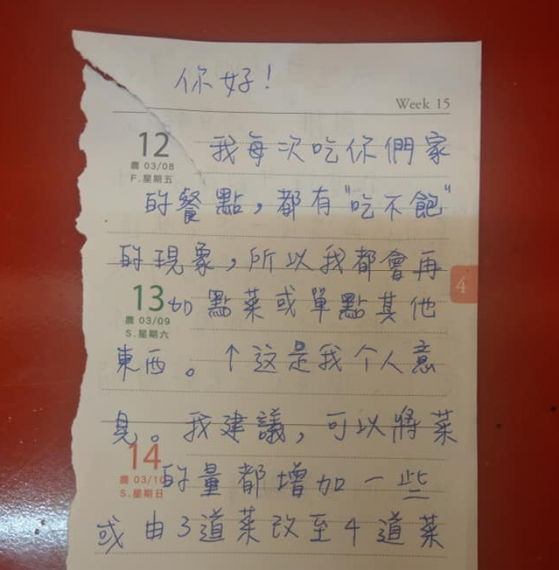 你好!
Week 15
12
農 03/08
F.星期五
我每次吃你們家
的餐點,都有"吃不飽"
的現象,所以我都會再
4
13
農 03/09
S.星期六
加點菜或單點其他
東西。↑这是我个人意
見。我建議,可以將菜
14
農 03/10
S.星期日
的量都增加一些
或由3道菜改至4道菜